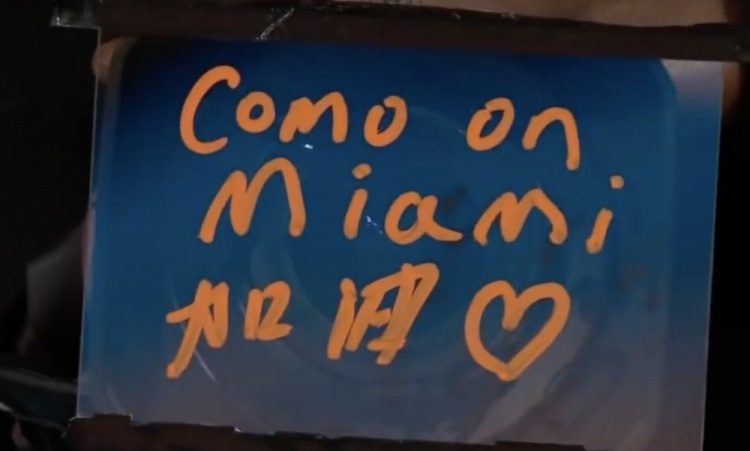 Como on
Miami
加油♡